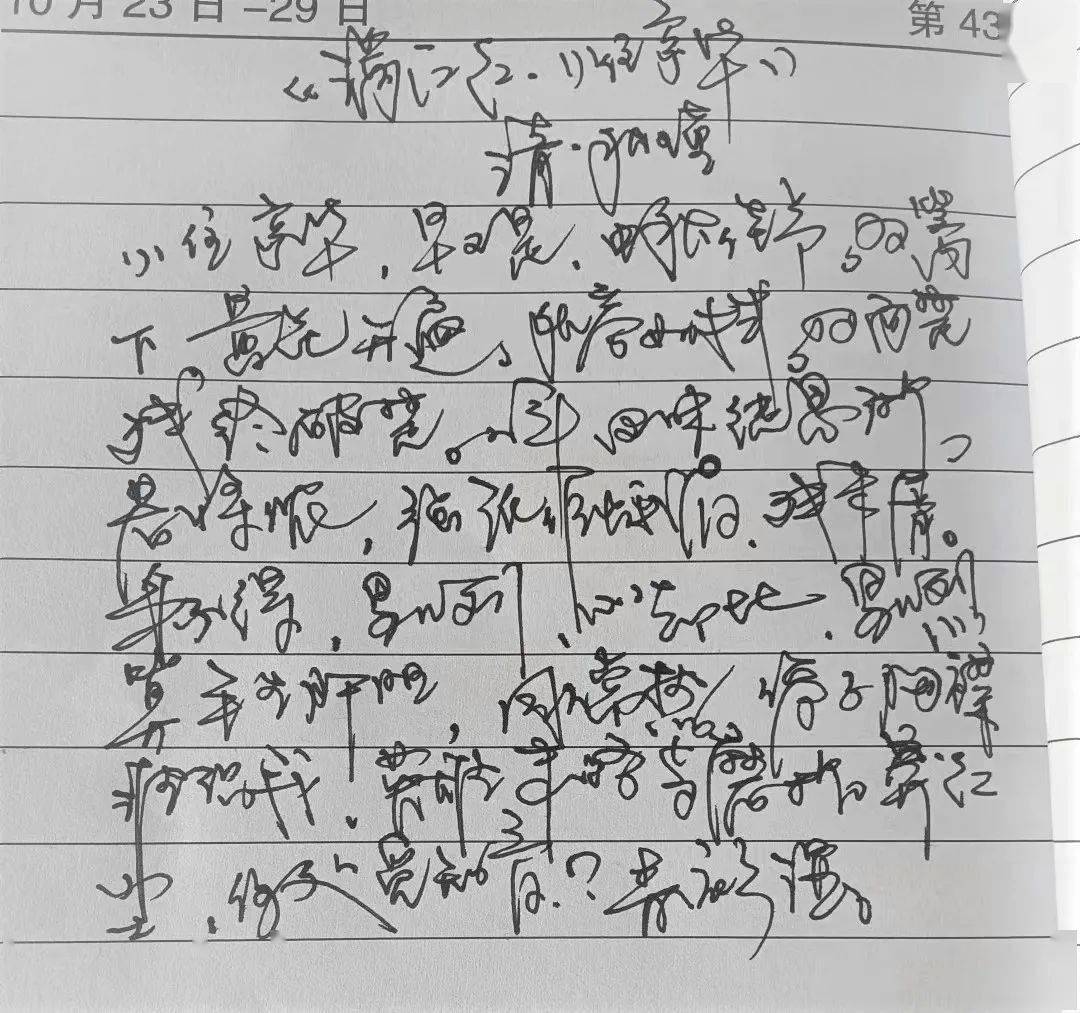 10月23日-29日
第43
《满江红·小住京华》
清·秋瑾
小住京华,早又是,中秋佳节。为篱
下黄花开遍,秋容如拭。四面歌
残终破楚。八年风味徒思浙
苦将侬,强派作蛾眉,殊未屑。
身不得,男儿列,心却比,男儿
烈
算平生肝胆,因人常热,俗子胸襟
谁识我,英雄末路当磨折莽红
尘,何处觅知音?青衫湿